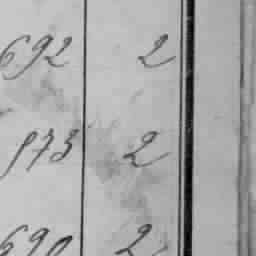 692 2
973 2
690 2